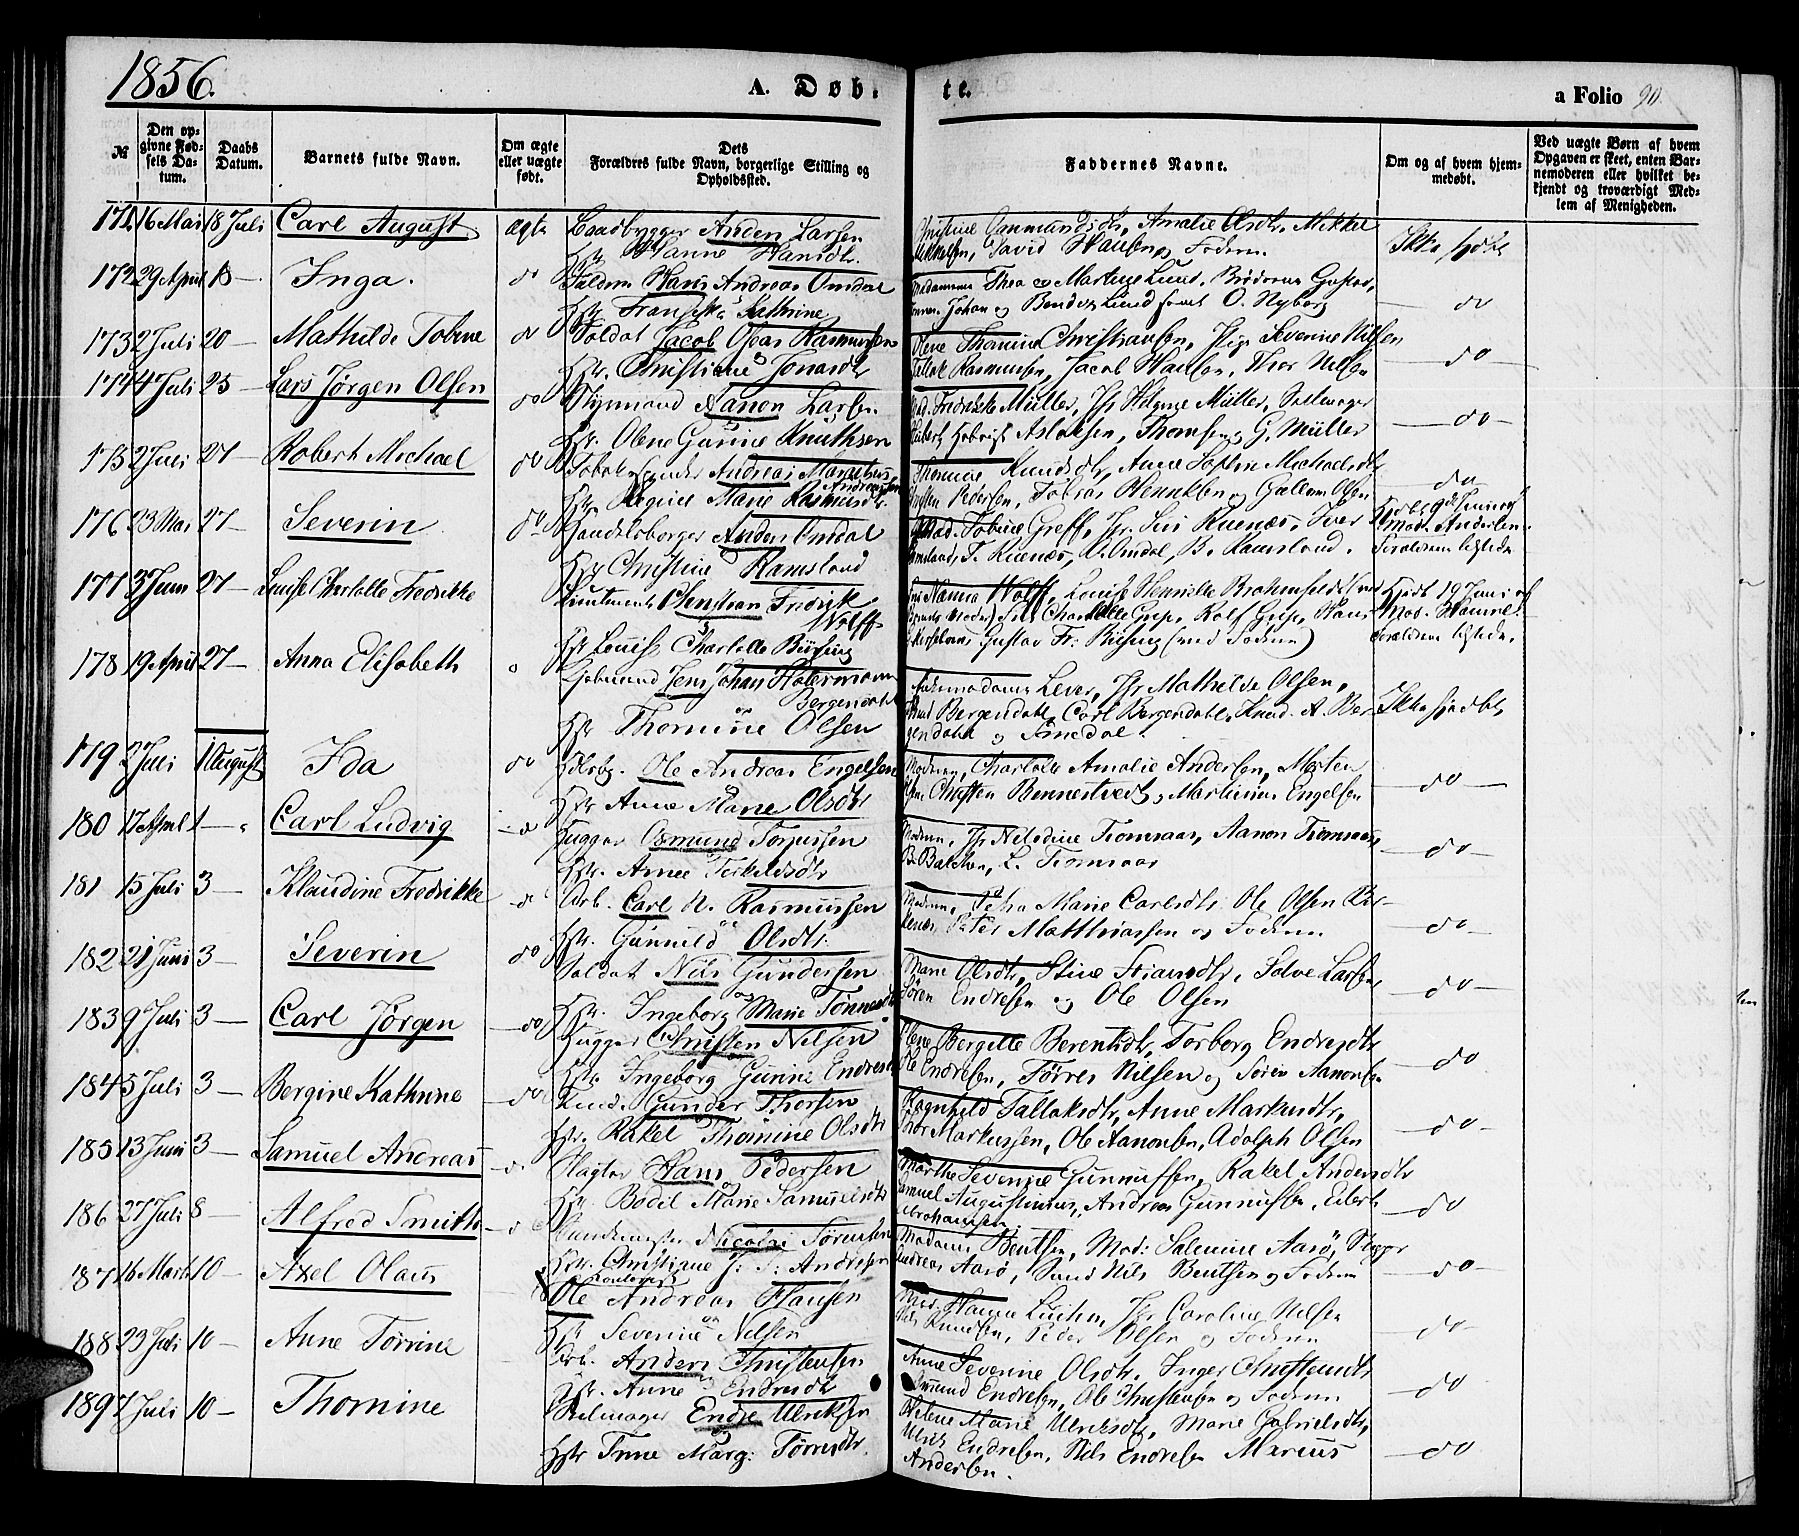 1856.
A. Døb-
te.
a Folio 90.
№
Den op-
givne Fød-
sels Da-
tum.
Daabs
Datum.
Barnets fulde Navn.
Om ægte
eller uægte
født.
Dets
Forældres fulde Navn, borgerlige Stilling og
Opholdssted.
Faddernes Navne.
Om og af hvem hjem-
medøbt.
Ved uægte Børn af hvem
Opgaven er skeet, enten Bar-
nemoderen eller hvilket be-
kjendt og troværdigt Med-
lem af Menigheden.
171 16 Mai 18 Juli Carl August ægte Baadbygger Anders Larsen
Hstr Hanne Hansdtr.
Christine Osmundsdtr, Amalie Olsdtr, Mikkel
Mikkelsen, David Hansen og Faderen.
Ikke hjdbt
172 29 April 18 — Inga. do Hans Andreas Omdal
Hstr Franciska Cathrine
Madammerne Thea og Martine Lund, Brødrene Gustav,
Johan og Lund samt O. Nyborg
do
173 2 Juli 20 — Mathilde Tobine do Soldat Jacob Oscar Rasmussen
Hstr. Christiane Jonasdtr
Olene Thomine Christiansen, Severine Nilsen
Tellak Rasmussen, Jacob Hansen, Thor Nilsen
— do —
174 4 Juli 25 Lars Jørgen Olsen do Styrmand Aanon Larsen
Hstr. Olene Gurine Knuthsen
Mad. Fredrikke Müller, Jfr Helene Müller, Seilmager
Aslaksen, Thomsen og G. Müller
— do —
175 2 Juli 27 — Robert Michael do Andreas
Andreassen
Hstr. Regine Marie Rasmusdtr.
Thomine Knudsdtr, Anne Sophie Michaelsdtr
Pedersen, Tobias Henriksen og Olsen
do
176 23 Mai 27 — Severin do Handelsborger Anders Omdal
Hstr Christine Ramsland
Mad. Tobine Greff, Jfr. Siri Kuenæs, Iver
Ramsland, T. Kuenæs, O. Omdal, B. Ramsland.
Hjdbt 9de Juni af
Mad. Andersen.
177 3 Juni 27 — Louise Charlotte Fredrikke
Lieutenant Christian Fredrik
Wolff
Hstr Louise Charlotte Büsing
Nanna Wolff, Louise Henriette
Charlotte Grip, Rolf Grip, Hans
Gustav Fr. Büsing (med Faderen)
Hjdbt 19 Juni af
Mad.
178 19 April 27 — Anna Elisabeth
Jens Johan
Bergendahl
Hstr Thomine Olsen
Jfr Mathilde Olsen,
Bergendahl, Carl Bergendahl, Knud A. Ber-
gendahl og Smedal.
Ikke hjdbt
179 2 Juli 1 August Ida do Hdlsbg. Ole Andreas Engelsen
Hstr Anne Marie Olsdtr
Moderen, Charlotte Amalie Andersen, Morten
Christen Bennestvedt, Martinius Engelsen
do —
180 17 April 1 — Carl Ludvig — do Hugger Osmund Torjussen
Hstr. Anne Terkildsdtr
Moderen, Jfr Nilsdine Tromsaas, Aanon Tromsaas
B. Balchen, L. Tromsaas
— do —
181 15 Juli 3 — Klaudine Fredrikke — do Arb. Carl A. Rasmussen
Hstr. Gunnild Olsdtr.
Moderen, Petra Marie Carlsdtr. Ole Olsen
Peter Matthiassen og Faderen
— do —
182 21 Juni 3 — Severin do Soldat Nils Gundersen
Hstr. Ingeborg Marie Tønnesdtr
Marie Olsdtr, Stine, Salve Larsen,
Søren Endresen og Ole Olsen
— do —
183 9 Juli 3 — Carl Jørgen — do Hugger Christen Nilsen
Hstr. Ingeborg Gurine Endresdtr
Bergitte Berentsdtr, Torborg Endresdtr
Ole Endresen, Tørres Nilsen og Søren Aanonsen
do
184 5 Juli 3 — Bergine Kathrine — do Gunder Thorsen
Hstr. Rakel Thomine Olsdtr
Ragnhild Tallaksdtr, Anne Markusdtr,
Thor Markussen, Ole Aanonsen, Adolph Olsen
— do —
185 13 Juni 3 — Samuel Andreas — do Slagter Hans Pedersen
Hstr. Bodil Marie Samuelsdtr
Marthe Severine Gunnufsen, Rakel Andersdtr
Samuel Augustinius, Andreas Gunnufsen, Eilert
Abrahamsen.
— do
186 27 Juli 8 — Alfred Smith — do Nicolai Sørensen
Hstr. Christiane J. S. Andresen
Madame Bentsen, Mad: Salemine Aarø, Skipper
Andreas Aarø, Nils Bentsen og Faderen
— do —
187 16 Marts 10 — Axel Olaus
Ole Andreas Hansen
Hstr Severine Nilsen
Mad. Hanna, Jfr Caroline Nilsen
Nils Knudsen, Peder Olsen og Faderen
do —
188 23 Juli 10 — Anne Torine
Arb. Anders Christensen
Hstr. Anne Endresdtr
Anne Severine Olsdtr. Inger Christensdtr
Osmund Endresen, Ole Christensen og Faderen
— do
189 7 Juli 10 — Thomine
Seilmager Endre Ulriksen
Hstr Trine Marg: Tørresdtr.
Helene Marie Ulriksdtr, Marie Gabrielsdtr,
Ulrik Endresen, Nils Endresen Marcus
Andersen.
— do